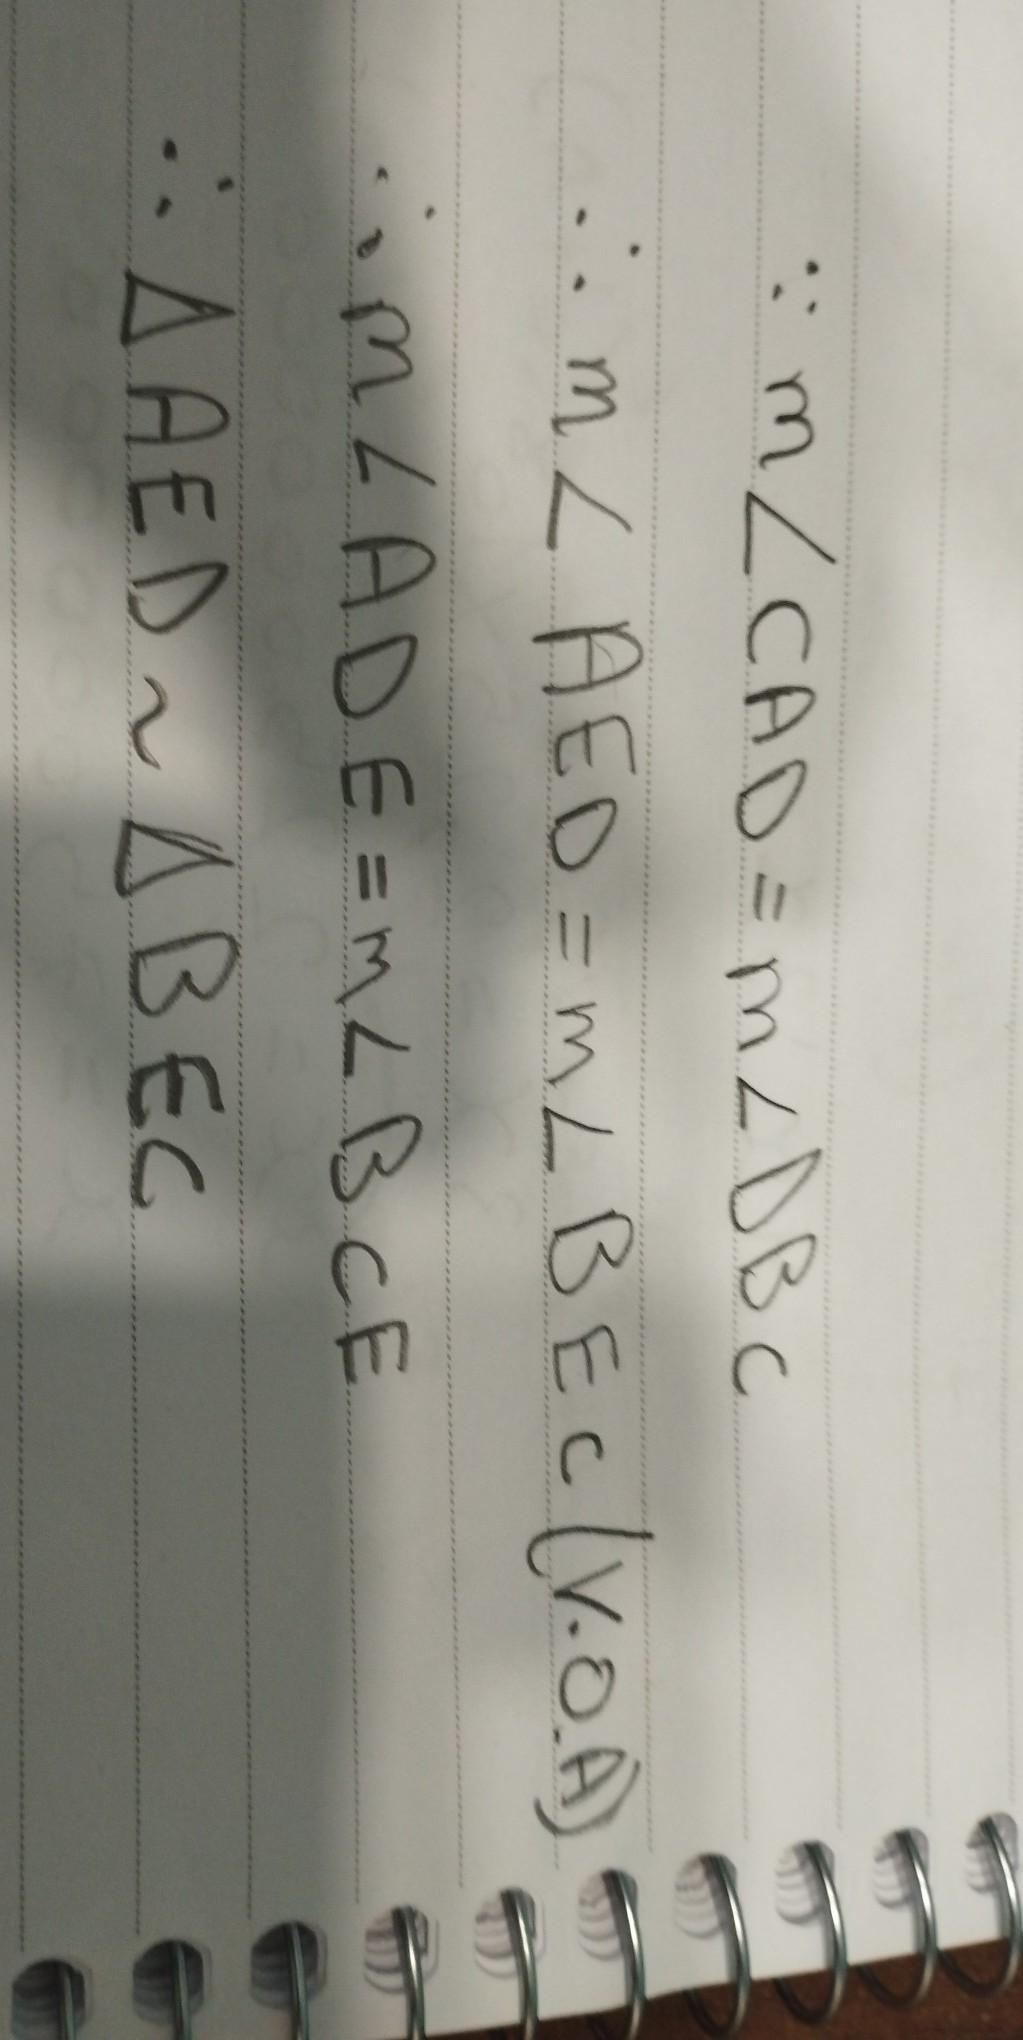 ∵ m∠CAD = m∠DBC
∴ m∠AED = m∠BEC (V.O.A)
∴ m∠ADE = m∠BCE
∴ ΔAED ~ ΔBEC